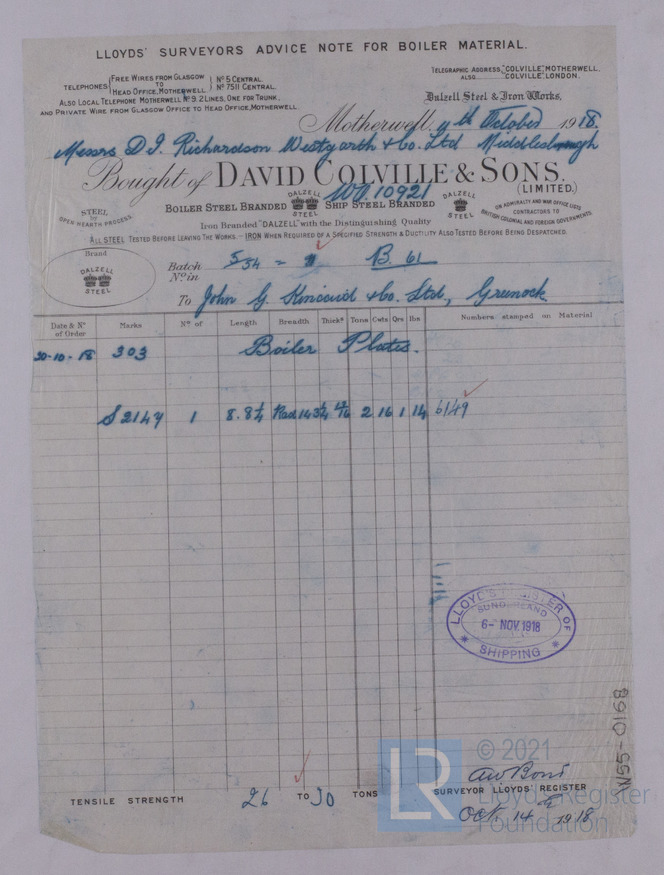 LLOYDS' SURVEYORS ADVICE NOTE FOR BOILER MATERIAL.
TELEPHONES FREE WIRES FROM GLASGOW TO HEAD OFFICE, MOTHERWELL. Nº 5 CENTRAL. Nº 7511 CENTRAL.
ALSO LOCAL TELEPHONE MOTHERWELL Nº 9. 2 LINES, ONE FOR TRUNK,
AND PRIVATE WIRE FROM GLASGOW OFFICE TO HEAD OFFICE, MOTHERWELL.
TELEGRAPHIC ADDRESS, "COLVILLE", MOTHERWELL.
ALSO "COLVILLE", LONDON.
Dalzell Steel & Iron Works,
Motherwell, October 1918
Messrs D. J. Richardson Westgarth & Co. Ltd Middlesbrough
Bought of DAVID COLVILLE & SONS.
(LIMITED.)
10921
BOILER STEEL BRANDED DALZELL STEEL SHIP STEEL BRANDED DALZELL STEEL
STEEL by OPEN HEARTH PROCESS.
ON ADMIRALTY AND WAR OFFICE LISTS
CONTRACTORS TO
BRITISH COLONIAL AND FOREIGN GOVERNMENTS.
Iron Branded "DALZELL" with the Distinguishing Quality
ALL STEEL TESTED BEFORE LEAVING THE WORKS. – IRON WHEN REQUIRED OF A SPECIFIED STRENGTH & DUCTILITY ALSO TESTED BEFORE BEING DESPATCHED.
Brand
DALZELL
STEEL
Batch Nº in 554 = B. 61
To John G. Kincaid & Co. Ltd., Greenock
Date & Nº of Order Marks Nº of Length Breadth Thicks Tons Cwts Qrs lbs Numbers stamped on Material
303 Boiler Plates.
S 2147 1 2 16 1 14 6149
LLOYD'S REGISTER OF
SUNDERLAND
6- NOV. 1918
SHIPPING
W55-0168
LR
© 2021
Lloyd's Register
Foundation
TENSILE STRENGTH 26 TO 30 TONS
SURVEYOR LLOYDS' REGISTER
Oct. 14 1918